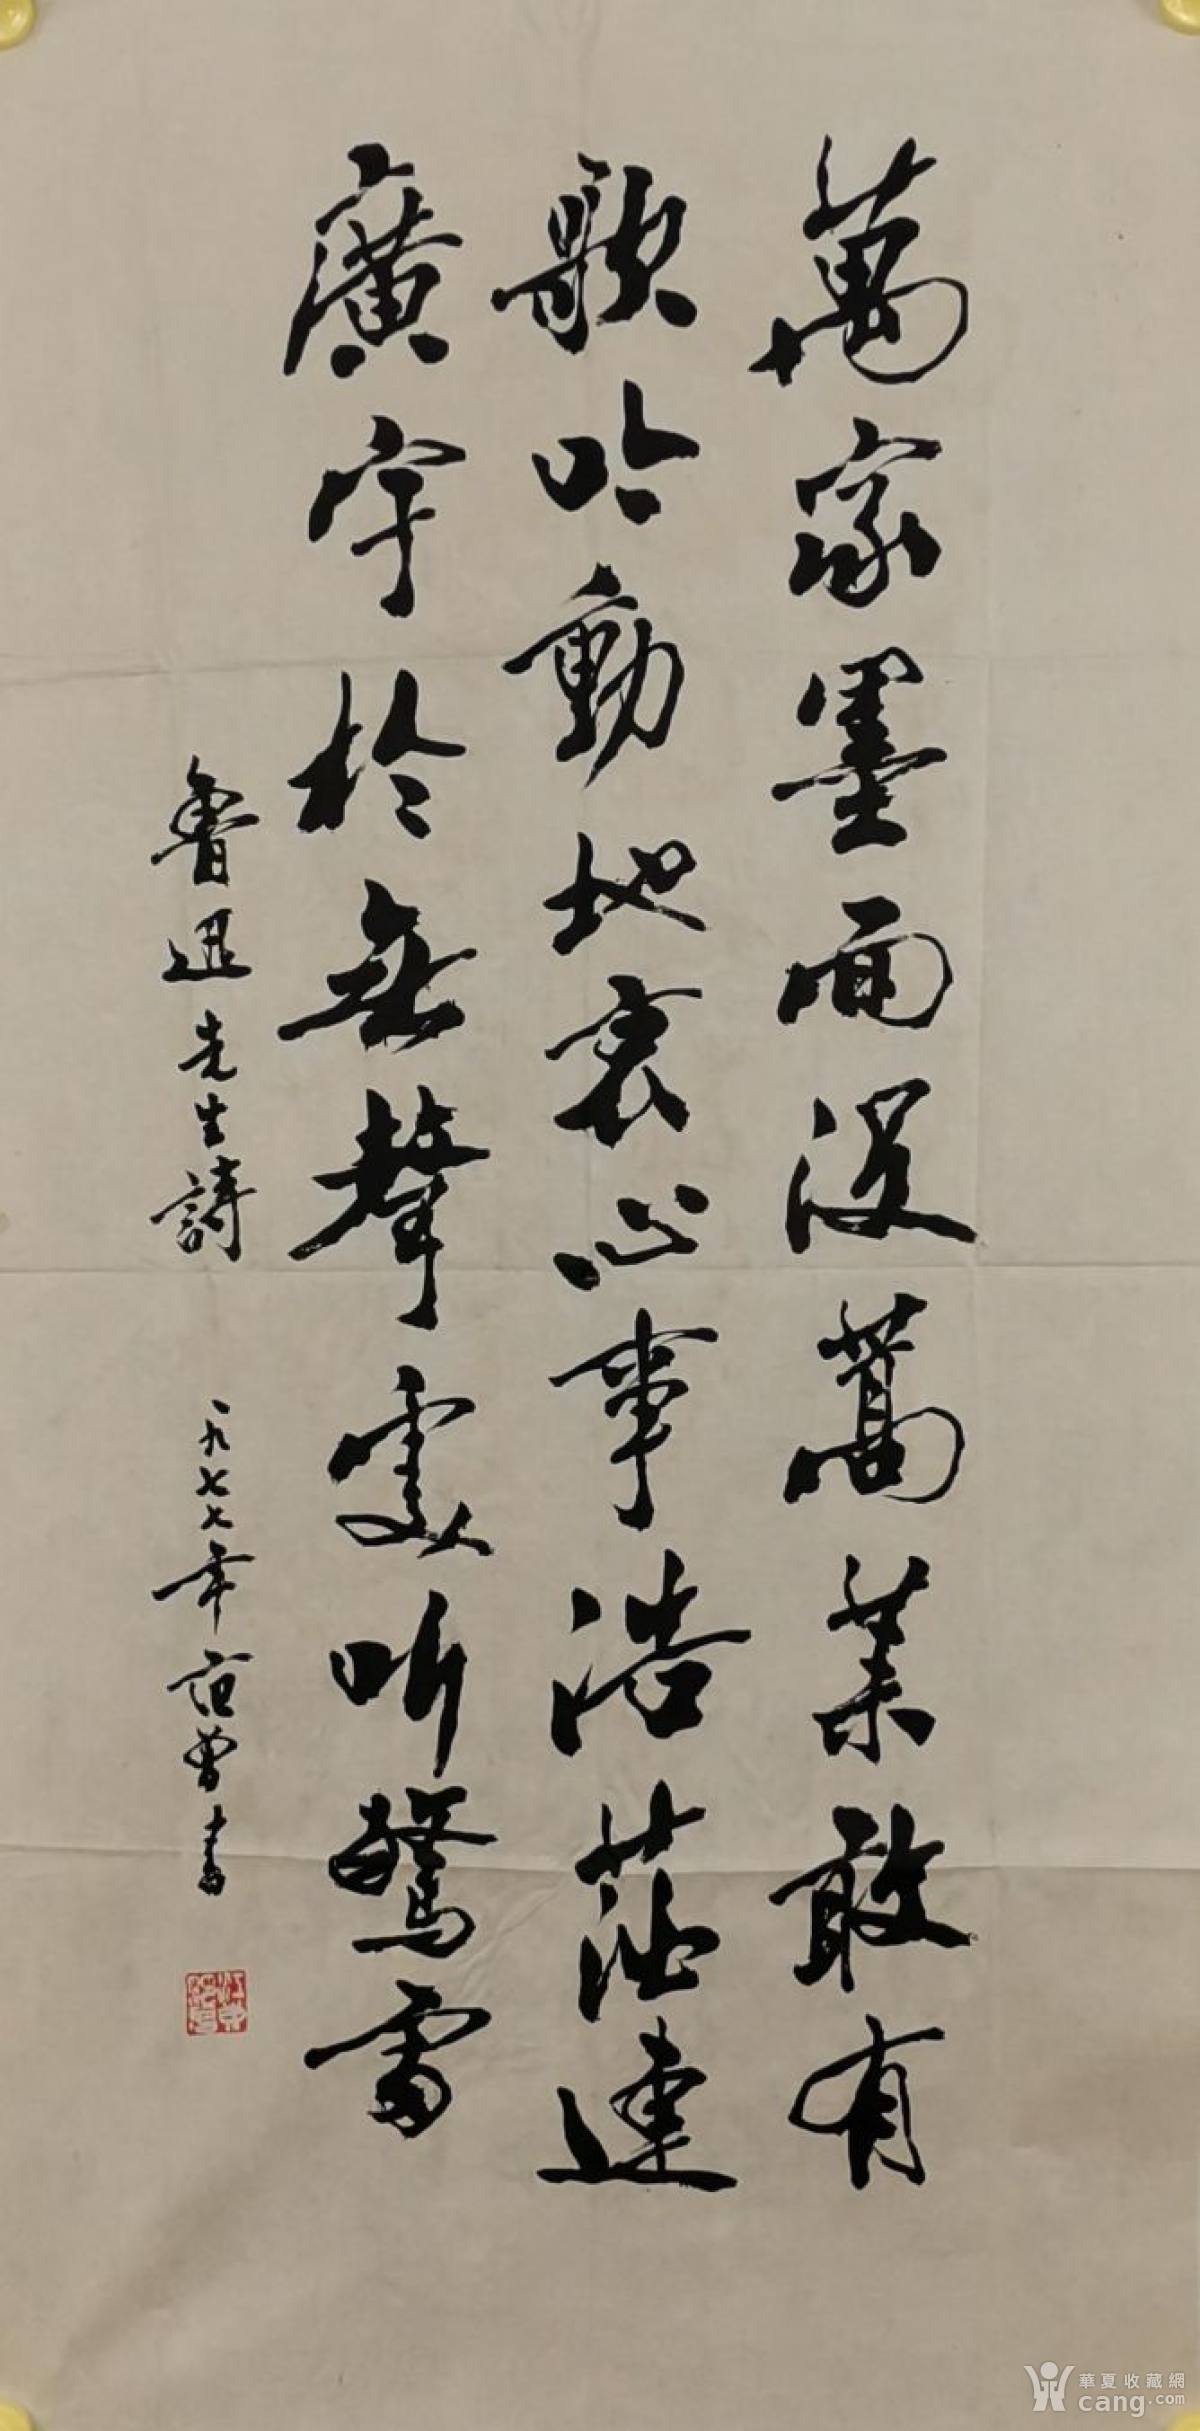 萬家墨面没蒿莱敢有
歌吟動地哀心事浩茫連
廣宇於無聲處听驚雷
魯迅先生詩 一九七七年范曾書
華夏收藏網
cang.com